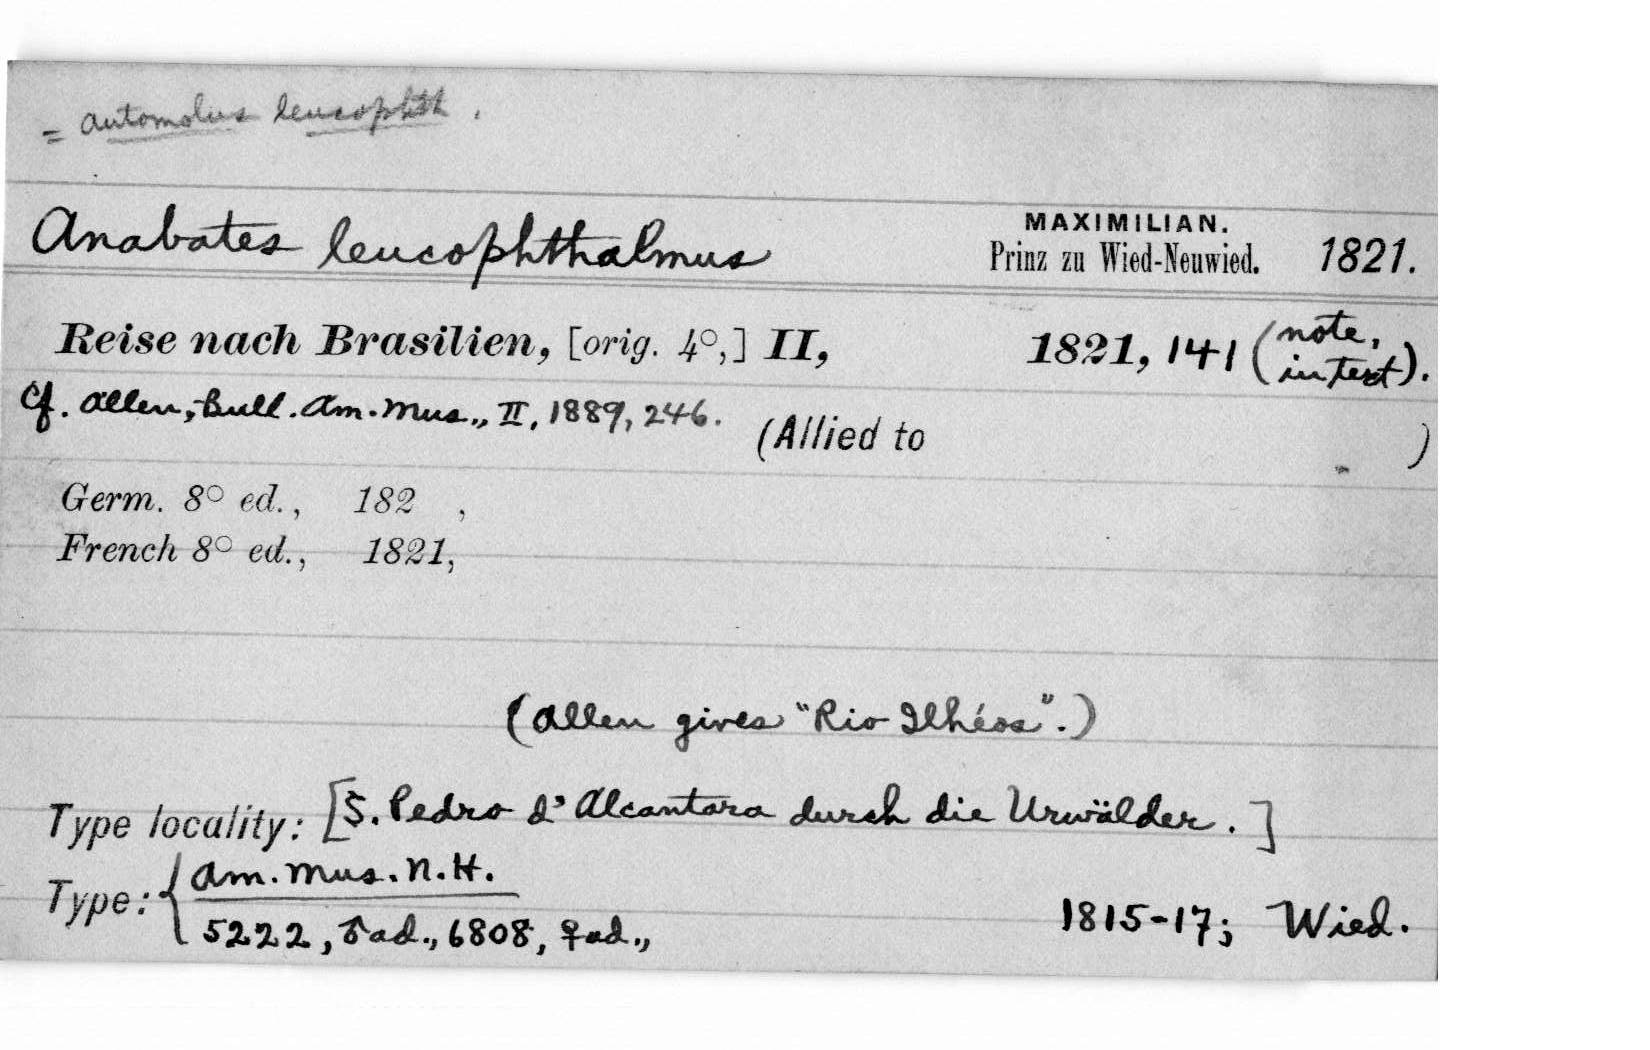 = automolus leucophth.
Anabates leucophthalmus
MAXIMILIAN.
Prinz zu Wied-Neuwied. 1821.
Reise nach Brasilien, [orig. 4°,] II, 1821, 141 (note, in text).
Cf. Allen, Bull. Am. Mus., II, 1889, 246.
(Allied to )
Germ. 8° ed., 182 ,
French 8° ed., 1821,
(Allen gives "Rio Ilhéos".)
Type locality: [S. Pedro d'Alcantara durch die Urwälder.]
Type: { Am. Mus. N. H.
5222, ♂ ad., 6808, ♀ ad., 1815-17; Wied.